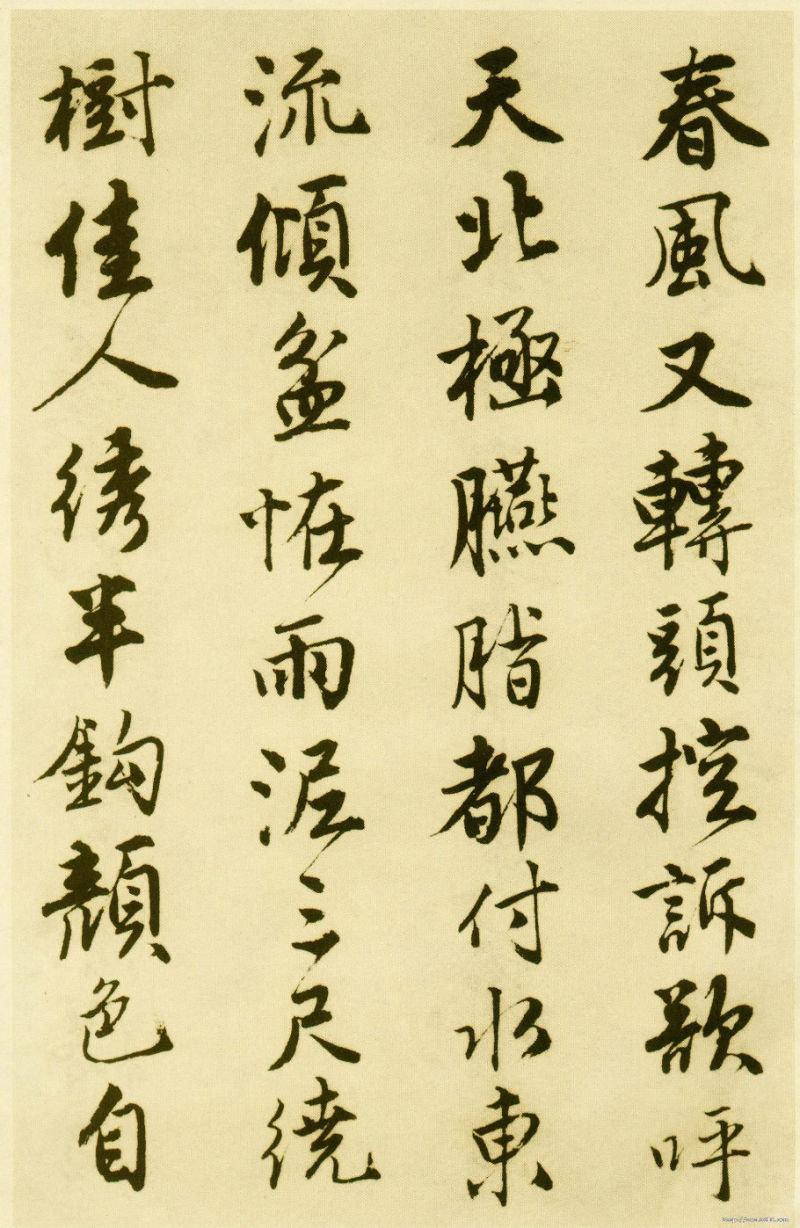 春風又轉頭控訴歘呼
天北極臙脂都付水東
流傾盆恠雨泥三尺繞
樹佳人綉半鈎顏色自